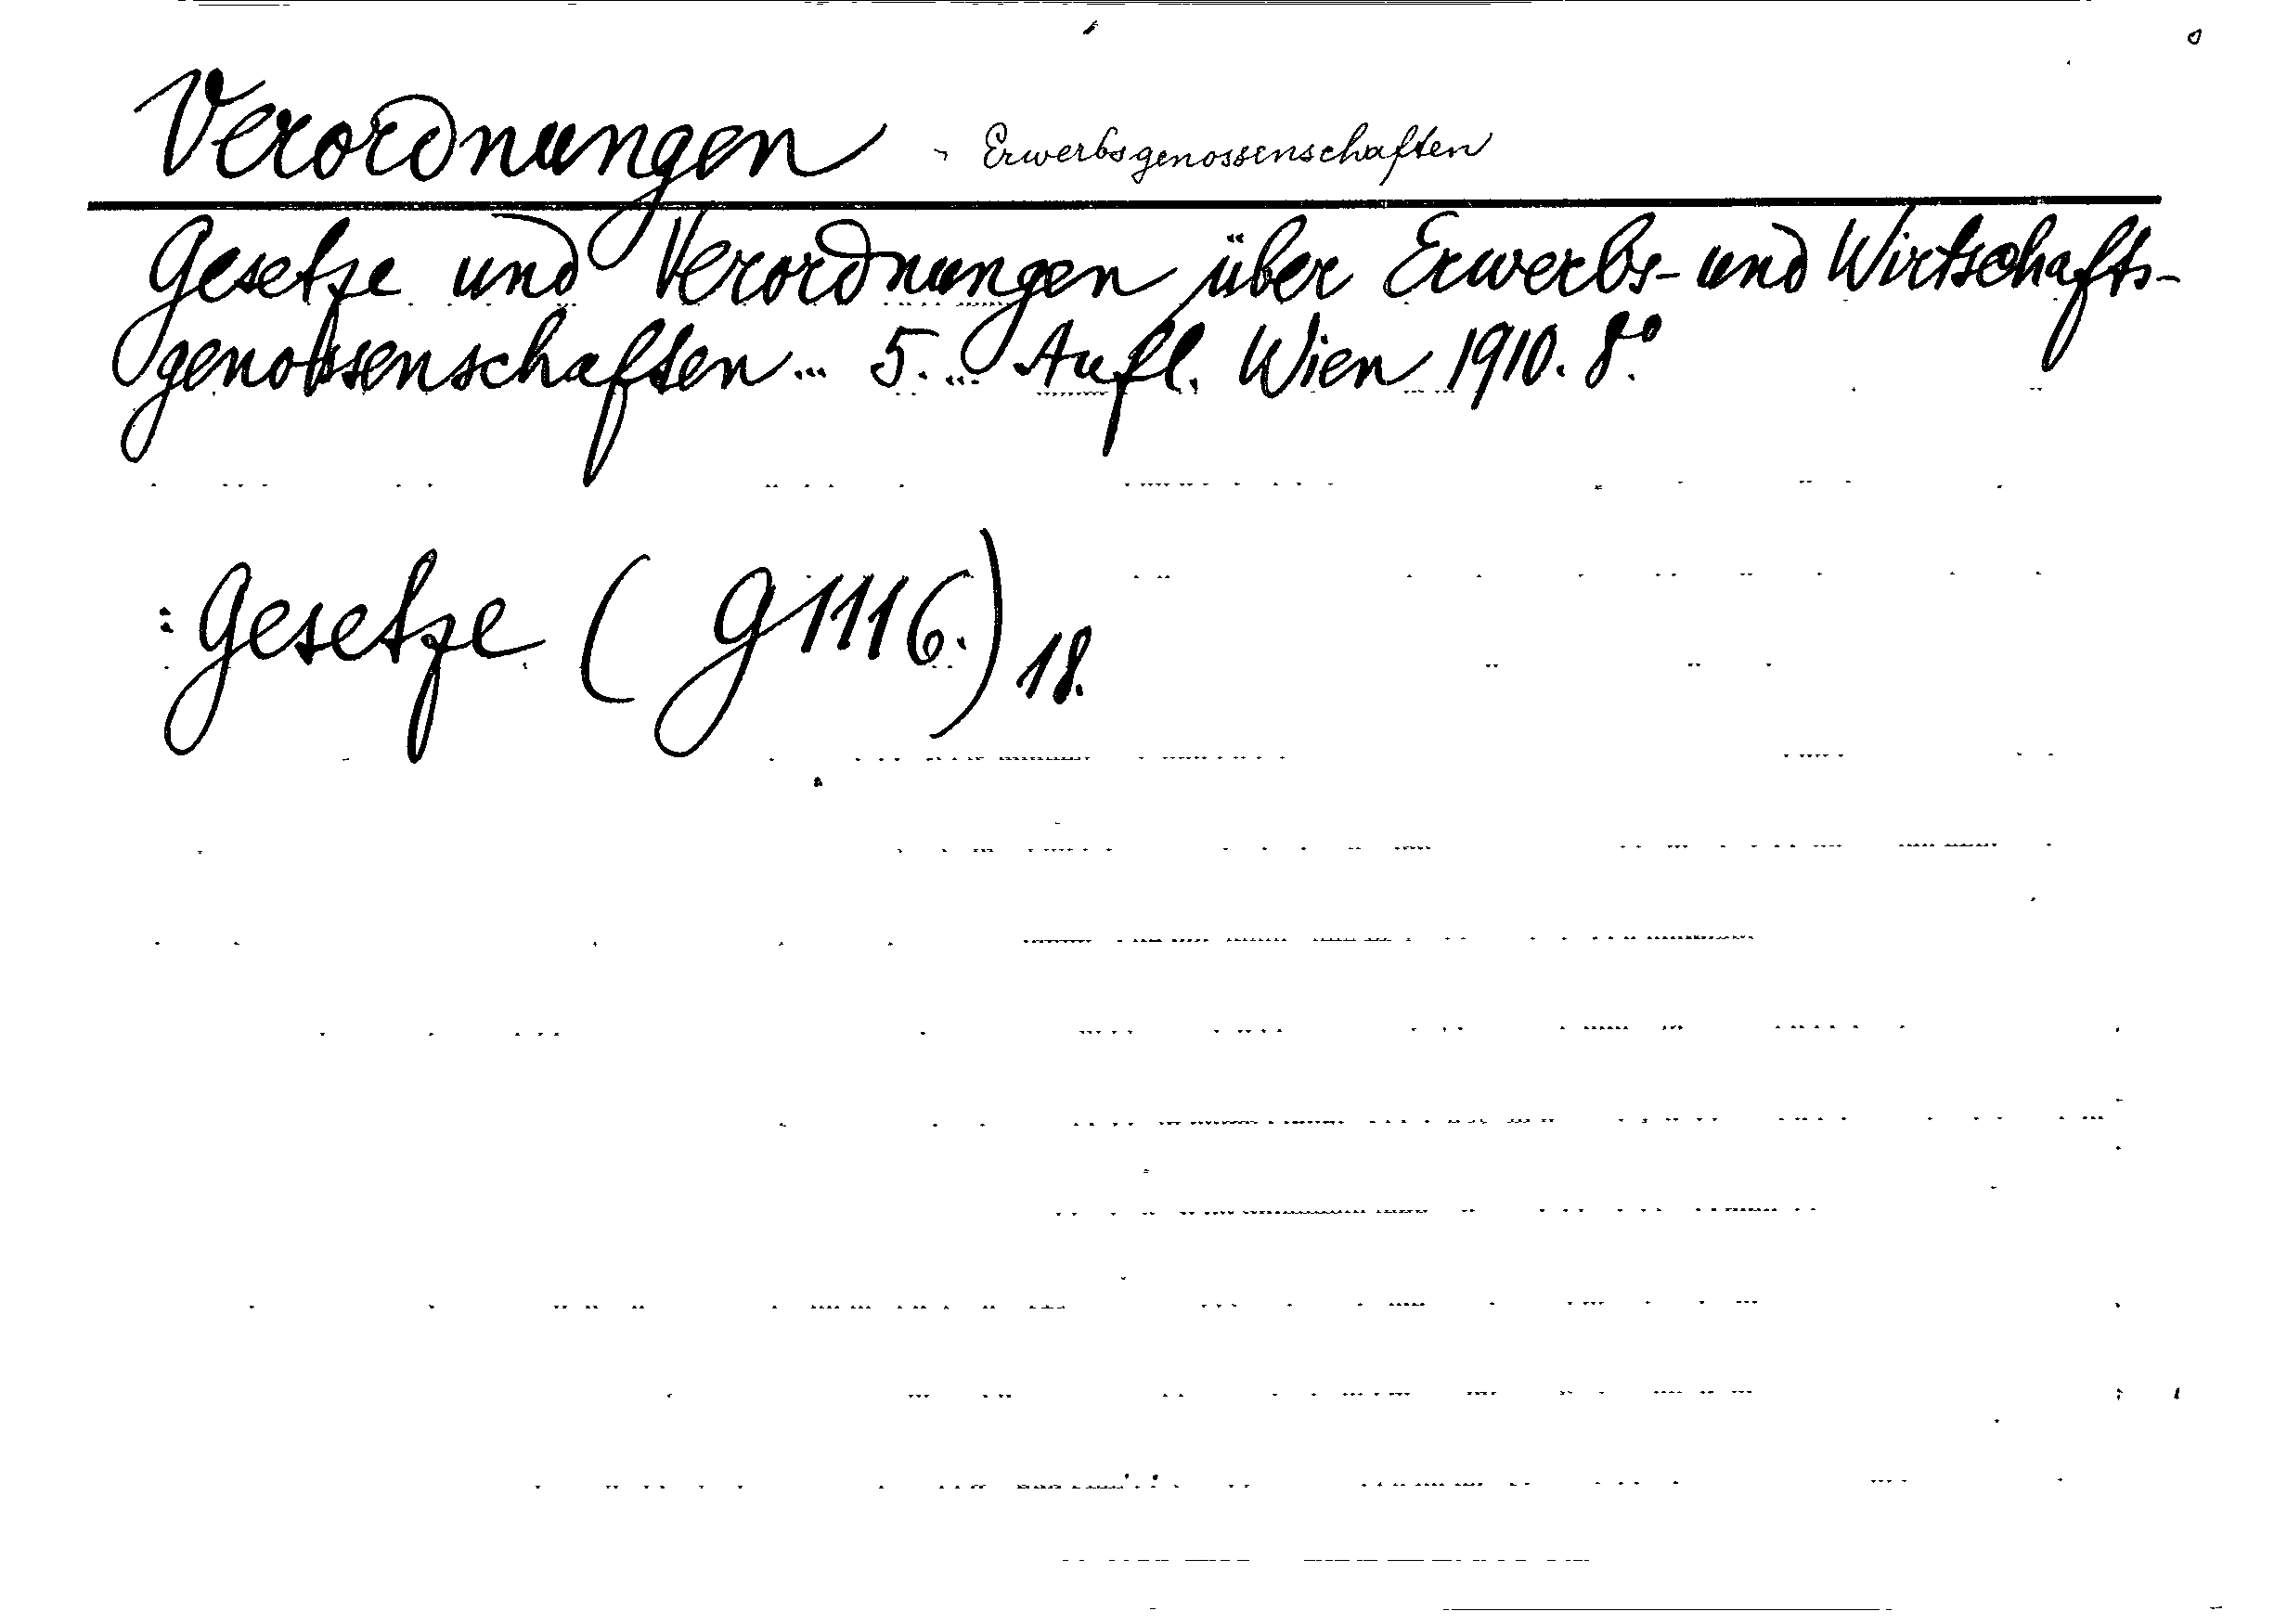 Verordnungen - Erwerbsgenossenschaften
Gesetze und Verordnungen über Erwerbs- und Wirtschafts-
genossenschaften... 5. ... Aufl. Wien 1910. 8°.
: Gesetze ( G 1116.) 18.